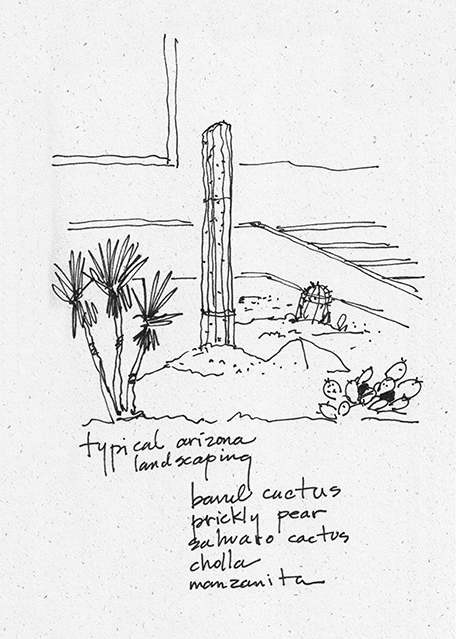 typical arizona
landscaping
barrel cactus
prickly pear
sahuaro cactus
cholla
manzanita